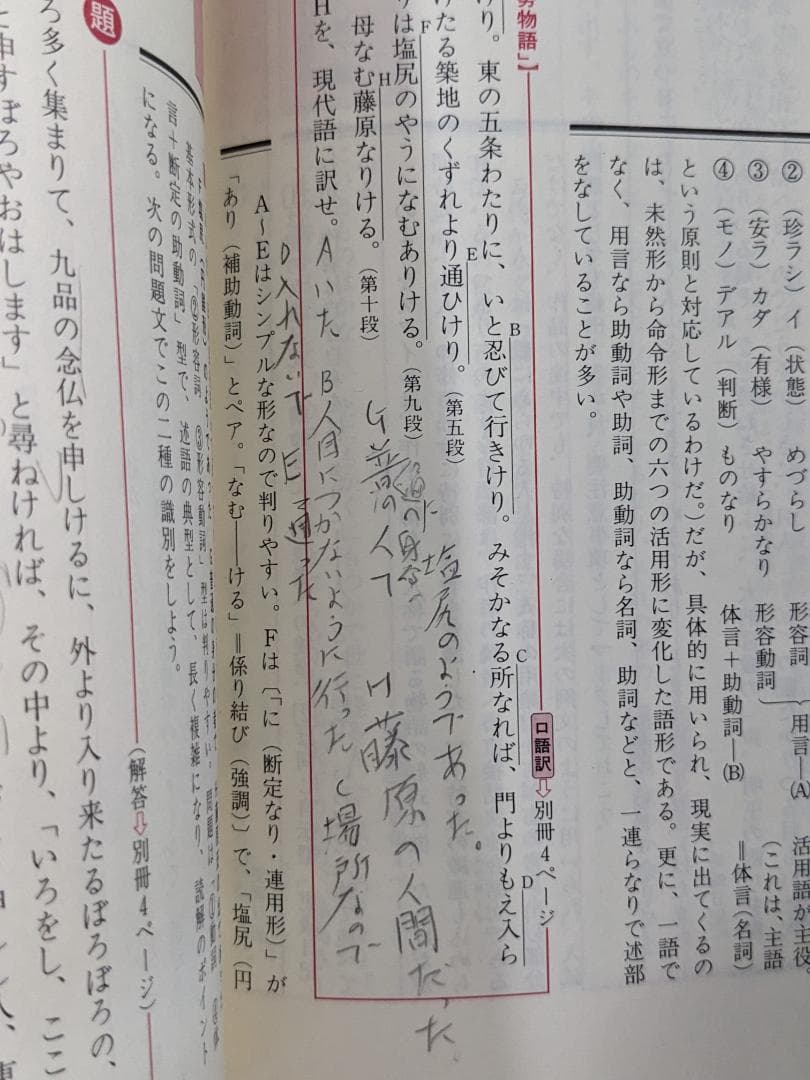 ② （珍ラシ）イ（状態） めづらし 形容詞
③ （安ラ）カダ（有様） やすらかなり 形容動詞
用言―(A) 活用語が主役
④ （モノ）デアル（判断） ものなり 体言＋助動詞―(B) ＝体言（名詞）
（これは、主語
という原則と対応しているわけだ。）だが、具体的に用いられ、現実に出てくるの
は、未然形から命令形までの六つの活用形に変化した語形である。更に、一語で
なく、用言なら助動詞や助詞、助動詞なら名詞、助詞などと、一連らなりで述部
をなしていることが多い。
物語」】
口語訳⇨別冊4ページ
けり。東の五条わたりに、いと忍びて行きけり。みそかなる所なれば、門よりもえ入ら
B C D
けたる築地のくずれより通ひけり。（第五段）
E
りは塩尻のやうになむありける。（第九段）
F
塩尻のようであった。
母なむ藤原なりける。（第十段）
H
G 普の人で
H 藤原の人間だった
Hを、現代語に訳せ。
A いた B 人目につかないように行った C 場所なので
D 入れないで E 通った
A～Eはシンプルな形なので判りやすい。Fは〔「に（断定なり・連用形）」が
「あり（補助動詞）」とペア。「なむ――ける」＝係り結び（強調）〕で、「塩尻（円
基本形式の「②形容詞 ③形容動詞」型は判りやすい。問題は
言＋断定の助動詞」型で、述語の典型として、長く複雑になり、読解のポイント
になる。次の問題文でこの二種の識別をしよう。
（解答⇨別冊4ページ）
題
ろ多く集まりて、九品の念仏を申しけるに、外より入り来たるぼろぼろの、
申すぼろやおはします」と尋ねければ、その中より、「いろをし、ここ